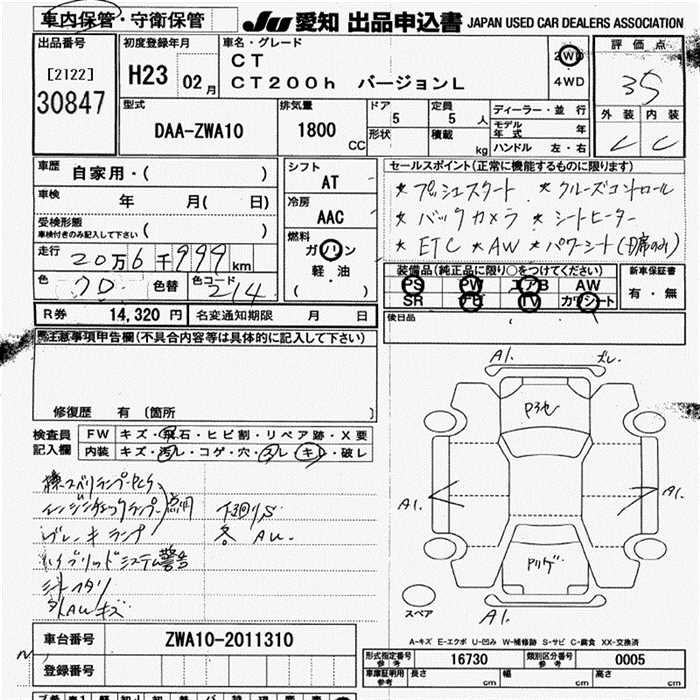 車内保管・守衛保管 JU 愛知 出品申込書 JAPAN USED CAR DEALERS ASSOCIATION
出品番号 初度登録年月 車名・グレード 評価点
[2122] H23 02月 CT 2WD 35
30847 CT200h バージョンL 4WD
外装 内装
C C
型式 排気量 ドア 5 定員 5人 ディーラー・並行
DAA-ZWA10 1800CC 形状 積載 kg モデル年式 年
ハンドル 左・右
車歴 自家用・( ) シフト AT セールスポイント(正常に機能するものに限ります)
車検 年 月( 日) 冷房 AAC ★プッシュスタート ★クルーズコントロール
受検形態 車検付きのみ記入して下さい ( ) ★バックカメラ ★シートヒーター
走行 20万6千999km 燃料 ガソリン 軽・油 ( ) ★ETC ★AW ★パワーシート(D席のみ)
色 色替 色コード 214 装備品(純正品に限り○をつけてください) 新車保証書
PS PW エアB AW 有・無
SR ナビ TV カワシート
R券 14,320円 名変通知期限 月 日 後日品
注意事項申告欄(不具合内容等は具体的に記入して下さい)
修復歴 有 〔箇所 〕
検査員 FW キズ・飛石・ヒビ割・リペア跡・X要
記入欄 内装 キズ・汚レ・コゲ・穴・スレ・キレ・破レ
横スベリランプ
エンジンチェックランプ 点灯 下回りS
ブレーキランプ 各AU
ハイブリッドシステム警告
シートヘタリ
A1.
A1. A1.
A1.
スペア
A-キズ E-エクボ U-凹み W-補修跡 S-サビ C-腐食 XX-交換済
車台番号 ZWA10-2011310
登録番号
形式指定番号 参考 16730 類別区分番号 参考 0005
車庫証明用 参考 長さ cm 幅 cm 高さ cm